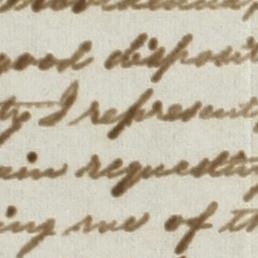 good disposit
ty I represent
ain requesting
ing me of th